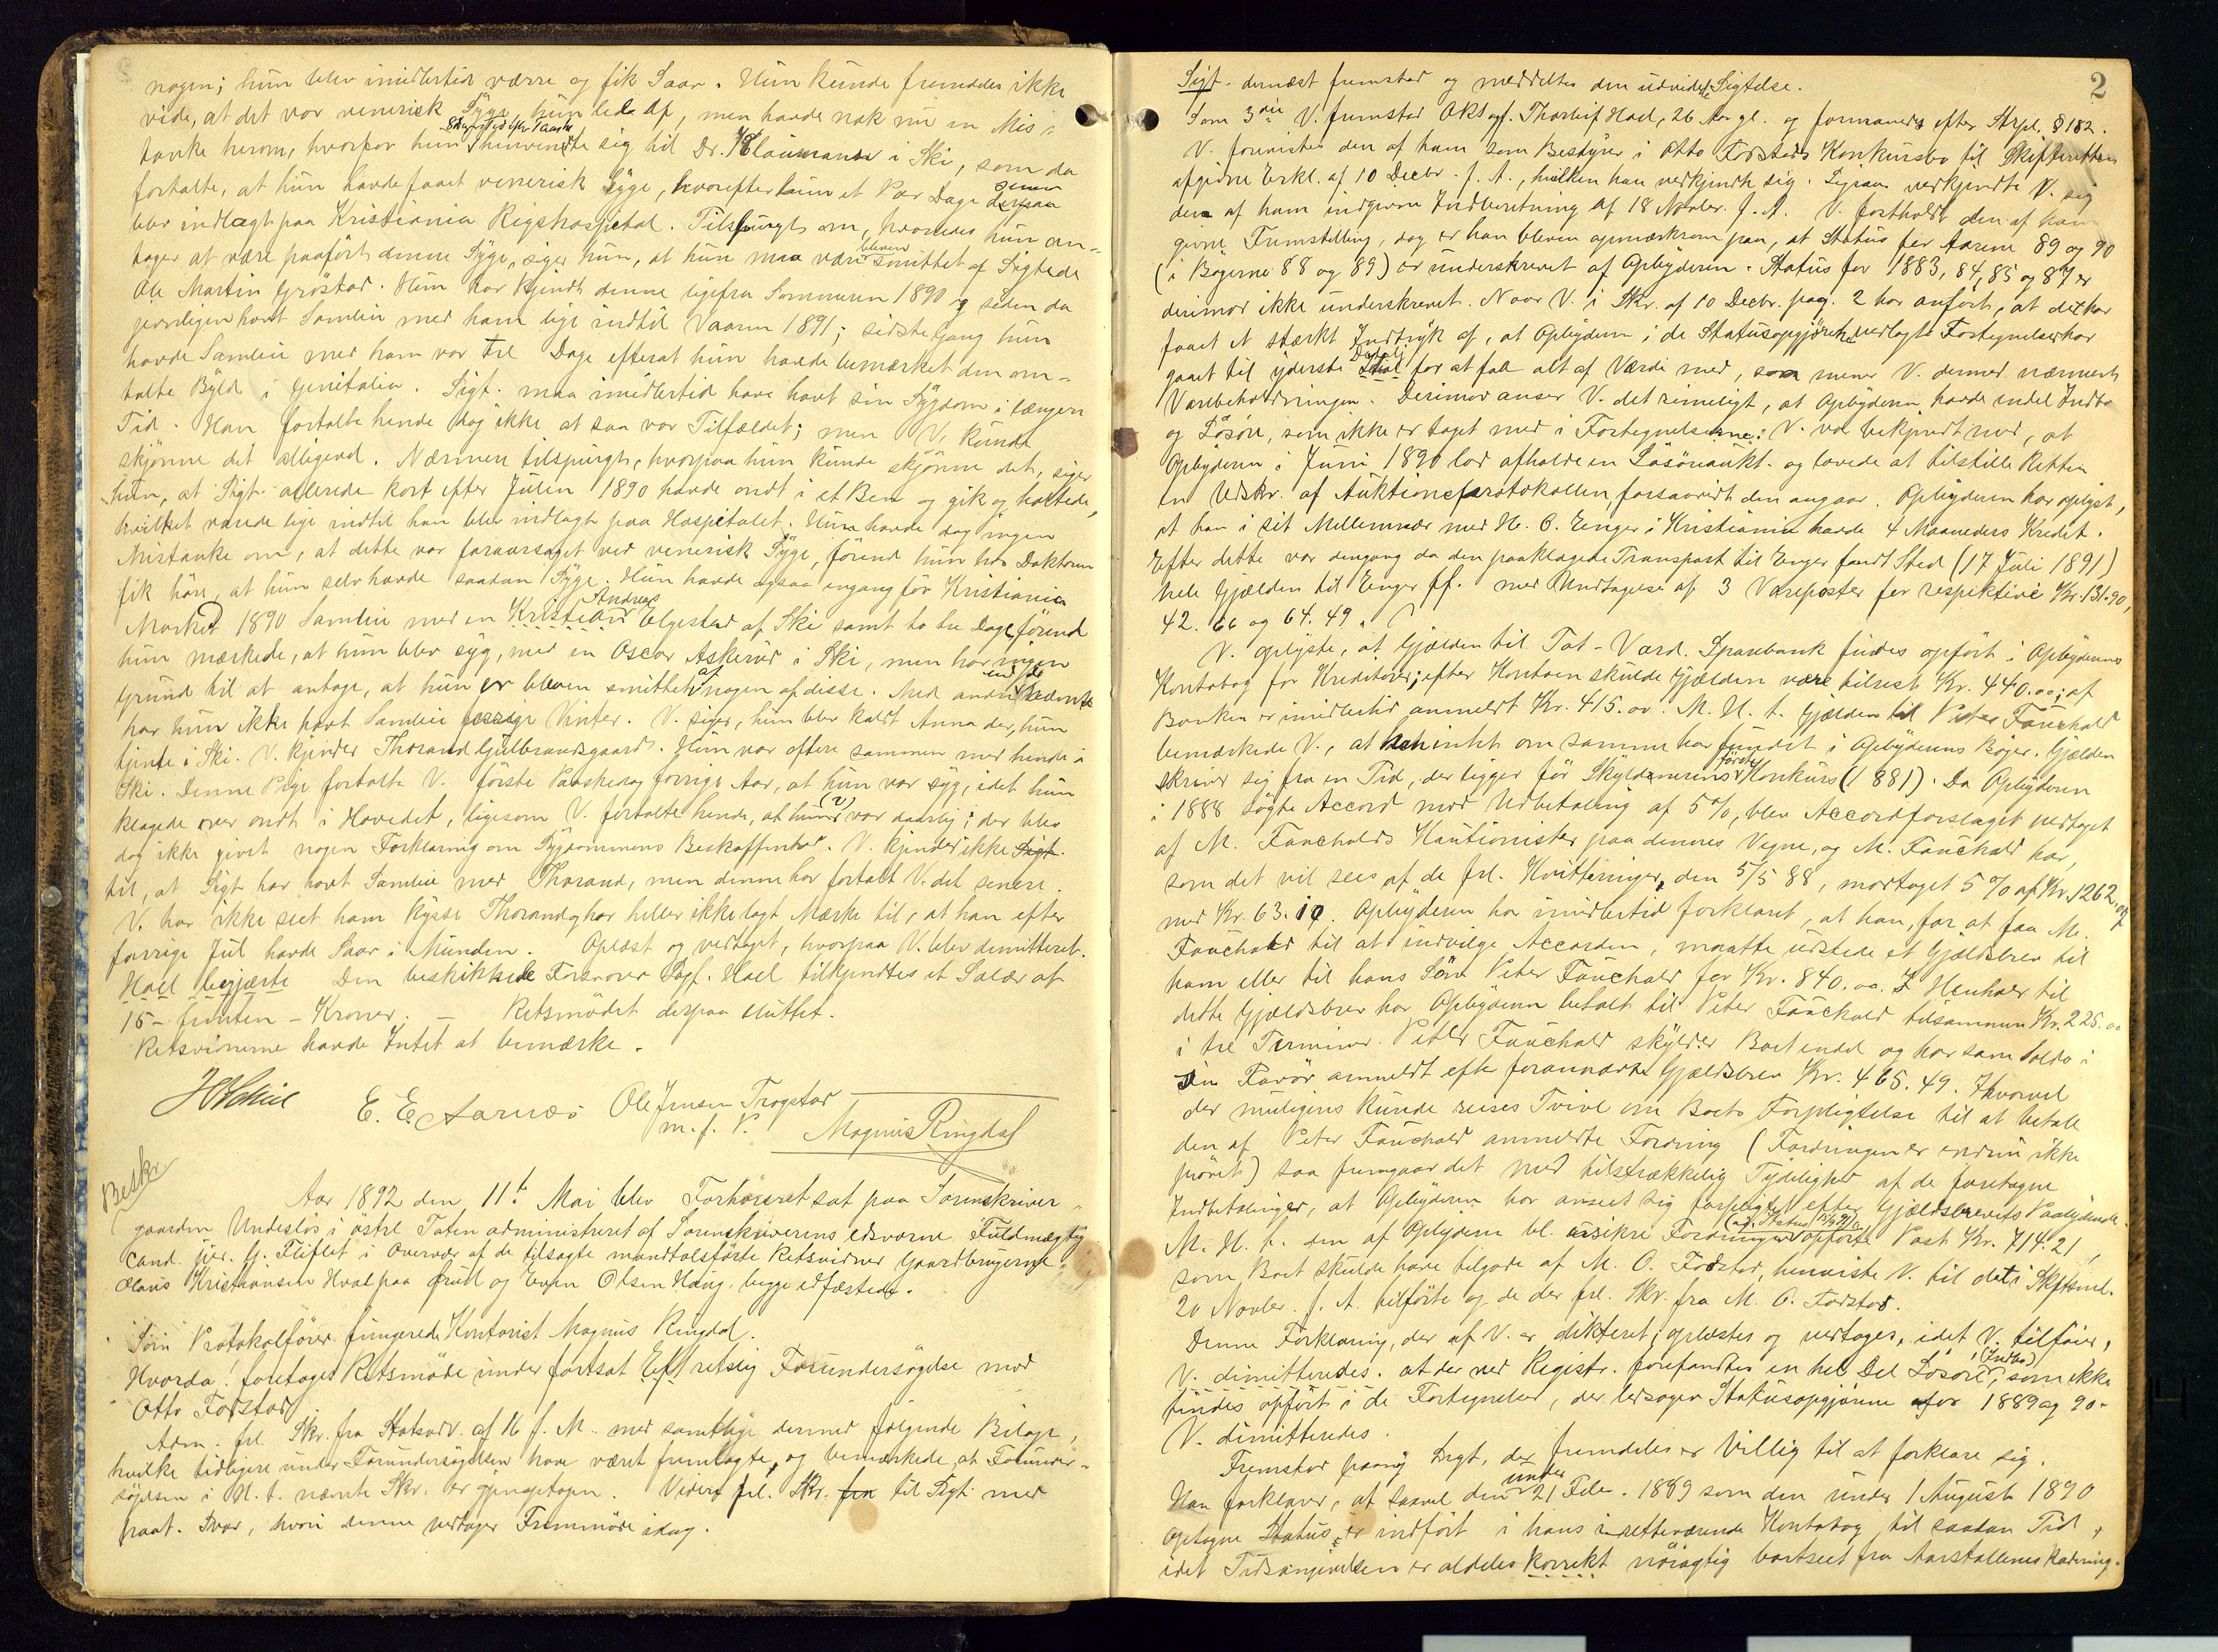 nogen; hun blev imidlertid værre og fik Saar. Hun kunde fremdeles ikke
vide, at det var venerisk Syge hun led af, men havde nok nu en Mis-
tanke herom, hvorfor hun henvendte sig til Dr. Klaumann i Ski, som da
fortalte, at hun havde faaet venerisk Syge, hvorefter hun et Par Dage senere
blev indlagt paa Kristiania Rigshospital. Tilspurgt om, hvorledes hun an-
tager at være paaført denne Syge, siger hun, at hun maa være bleven smittet af Sigtede
Ole Martin Grøstad. Hun har kjendt denne ligefra Sommeren 1890 og siden da
jevnligen havt Samleie med ham lige indtil Vaaren 1891; sidste Gang hun
havde Samleie med ham var tre Dage efterat hun havde bemærket den om-
talte Byld i genitalia. Sigt. maa imidlertid have havt sin Sygdom i længere
Tid. Han fortalte hende dog ikke at saa var Tilfældet; men V. kunde
skjønne det alligevel. Nærmere tilspurgt, hvorpaa hun kunde skjønne det, siger
hun, at Sigt. allerede kort efter Julen 1890 havde ondt i et Ben og gik og haltede,
hvilket varede lige indtil han blev indlagt paa Hospitalet. Hun havde dog ingen
Mistanke om, at dette var foraarsaget ved venerisk Syge, førend hun hos Doktoren
fik høre, at hun selv havde saadan Syge. Hun havde ogsaa engang før Kristiania
Marked 1890 Samleie med en Kristian Andreas Elgestad af Ski samt to tre Dage førend
hun mærkede, at hun blev syg, med en Oscar Askerud i Ski, men har ingen
Grund til at antage, at hun er bleven smittet af nogen af disse. Med andre end de nævnte
har hun ikke havt Samleie forrige Vinter. V. siger, hun blev kaldt Anna der, hun
tjente i Ski. V. kjender Thorand Gulbrandsgaard. Hun var oftere sammen med hende i
Ski. Denne Pige fortalte V. første Paaskedag forrige Aar, at hun var syg, idet hun
klagede over ondt i Hovedet, ligesom V. fortalte hende, at hun (V) var daarlig; der blev
dog ikke givet nogen Forklaring om Sygdommens Beskaffenhed. V. kjender ikke
til, at Sigt. har havt Samleie med Thorand, men denne har fortalt V. det senere.
V. har ikke seet ham kysse Thorand og har heller ikke lagt Mærke til, at han efter
forrige Jul havde Saar i Munden. Oplæst og vedtaget, hvorpaa V. blev demitteret.
Hael begjærte Den beskikkede Forsvarer Sagf. Hael tilkjendtes et Salær af
15 – femten – Kroner. – Retsmødet derpaa sluttet.
Retsvidnerne havde Intet at bemærke.
E. E. Aarnæs Ole Jensen Trogstad
m. f. P. Magnus Ringdal
Beskr.
Aar 1892 den 11te Mai blev Forhørsret sat paa Sorenskriver-
gaarden Undeslös i østre Toten administreret af Sorenskriverens edsvorne Fuldmægtig
cand. jur. G. Fliflet i Overvær af de tilsagte mandtalsførte Retsvidner Gaardbrugerne
Olaus Kristiansen Hval paa Grud og Even Olsen Haug, begge edfæstede.
Som Protokolfører fungerede Kontorist Magnus Ringdal.
Hvorda! foretoges Retsmøde under fortsat Eftretslig Forundersøgelse mod
Otto Fodstad
Adm. frl. Skr. fra Statsadv. af 16 f. M. med samtlige dermed følgende Bilage,
hvilke tidligere under Forundersøgelsen have været fremlagte, og bemærkede, at Forunder-
søgelsen i H. t. nævnte Skr. er gjenoptagen. Videre frl. Skr. til Sigt. med
paat. Svar, hvori denne vedtager Fremmøde idag.
2
Sigt. dernæst fremstod og meddeltes den udvidede Sigtelse.
Som 3die V. fremstod Oksagf. Thorleif Hael, 26 Aar gl. og formanedes efter Strpl. § 182.
V. forevistes den af ham som Bestyrer i Otto Fodstads Konkursbo til Skifteretten
afgivne Erkl. af 10 Decbr. f. A., hvilken han vedkjendte sig. Ligesaa vedkjendte V. sig
den af ham indgivne Indberetning af 18 Novbr. f. A. V. fastholdt den af ham
givne Fremstilling, dog er han bleven opmærksom paa, at Status for Aarene 89 og 90
(i Bøgerne 88 og 89) er underskrevet af Opbyderen. Status for 1883, 84, 85 og 87 er
derimod ikke underskrevet. Naar V. i Skr. af 10 Decbr. pag. 2 har anført, at det har
faaet et stærkt Indtryk af, at Opbyderen i de Statusopgjørelse vedlagte Fortegnelser har
gaaet til yderste Detalj for at faa alt af Værdi med, saa mener V. dermed nærmest
Varebeholdningen. Derimod anser V. det rimeligt, at Opbyderen havde endel Indbo
og Løsøre, som ikke er taget med i Fortegnelserne. V. var bekjendt med, at
Opbyderen i Juni 1890 lod afholde en Løsøreaukt. og lovede at tilstille Retten
en Udskr. af Auktionsprotokollen, forsaavidt den angaar. Opbyderen har oplyst,
at han i sit Mellemvær med H. C. Enger i Kristiania havde 4 Maaneders Kredit.
Efter dette var dengang da den paaklagede Transport til Enger fandt Sted (17 Juli 1891)
hele Gjælden til Enger ff. med Undtagelse af 3 Vareposter for respektive Kr. 131.90,
42.66 og 64.49.
V. oplyste, at Gjælden til Tot-Vard. Sparebank findes opført i Opbyderens
Kontobog for Kreditorer; efter Kontoen skulde Gjælden være tilrest Kr. 440.00; af
Banken er imidlertid anmeldt Kr. 415.00. M. H. t. Gjælden til Peter Fauchald
bemærkede V., at han intet om samme har fundet i Opbyderens Bøger. Gjælden
skriver sig fra en Tid, der ligger før Skyldnerens første Konkurs (1881). Da Opbyderen
i 1888 søgte Accord mod Udbetaling af 5%, blev Accordforslaget vedtaget
af M. Fauchalds Kautionister paa dennes Vegne, og M. Fauchald har,
som det vil sees af de frl. Kvitteringer, den 5/5 88, modtaget 5 % af Kr. 1262.07
med Kr. 63.10. Opbyderen har imidlertid forklaret, at han, for at faa M.
Fauchald til at indvilge Accorden, maatte udstede et Gjældsbrev til
ham eller til hans Søn Peter Fauchald for Kr. 840.00. I Henhold til
dette Gjældsbrev har Opbyderen betalt til Peter Fauchald tilsammen Kr. 225.00
i tre Terminer. Peter Fauchald skylder Boet endel og har som Saldo i
sin Favør anmeldt efter forannævnte Gjældsbrev Kr. 465.49. Hvorvel
der muligens kunde reises Tvivl om Boets Forpligtelse til at betale
den af Peter Fauchald anmeldte Fordring (Fordringen er endnu ikke
prøvet) saa fremgaar det med tilstrækkelig Tydelighed af de foretagne
Indbetalinger, at Opbyderen har anseet sig forpligtet efter Gjældsbrevets Paalydende.
M. H. t. den af Opbyderen bl. usikre Fordringer opførte Post Kr. 714.21,
som Boet skulde have tilgode af M. O. Fodstad, henviste V. til det i Skiftsml.
20 Novbr. f. A. tilførte og de der frl. Skr. fra M. O. Fodstad.
Denne Forklaring, der af V. er dikteret, oplæstes og vedtoges, idet V. tilføier,
V. dimitteredes. at der ved Registr. forefandtes en hel Del Løsøre (Indbo), som ikke
findes opført i de Fortegnelser, der ledsager Statusopgjørene for 1889 og 90.
V. dimitteredes.
Fremstod paany Sigt, der fremdeles er villig til at forklare sig.
Han forklarer, at saavel den under 21 Febr. 1889 som den under 1 August 1890
optagne Status er indført i hans i retteværende Kontobog til saadan Tid,
idet Tidsangivelsen er aldeles korrekt nøiagtig bortseet fra Aarstallenes Rækning.